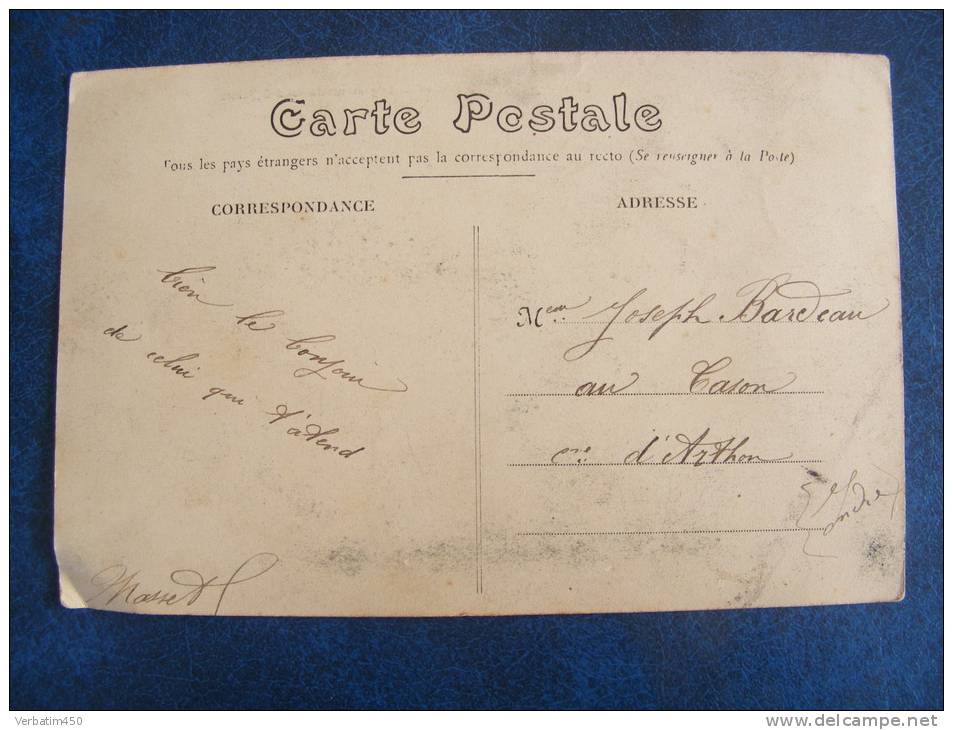 Carte Postale
Tous les pays étrangers n'acceptent pas la correspondance au recto (Se renseigner à la Poste)
CORRESPONDANCE
bien le bonjour
de celui qui t'atend
Masset
ADRESSE
M Joseph Bardeau
au Cason
cne d'Arthon
Indre
Verbatim450
www.delcampe.net